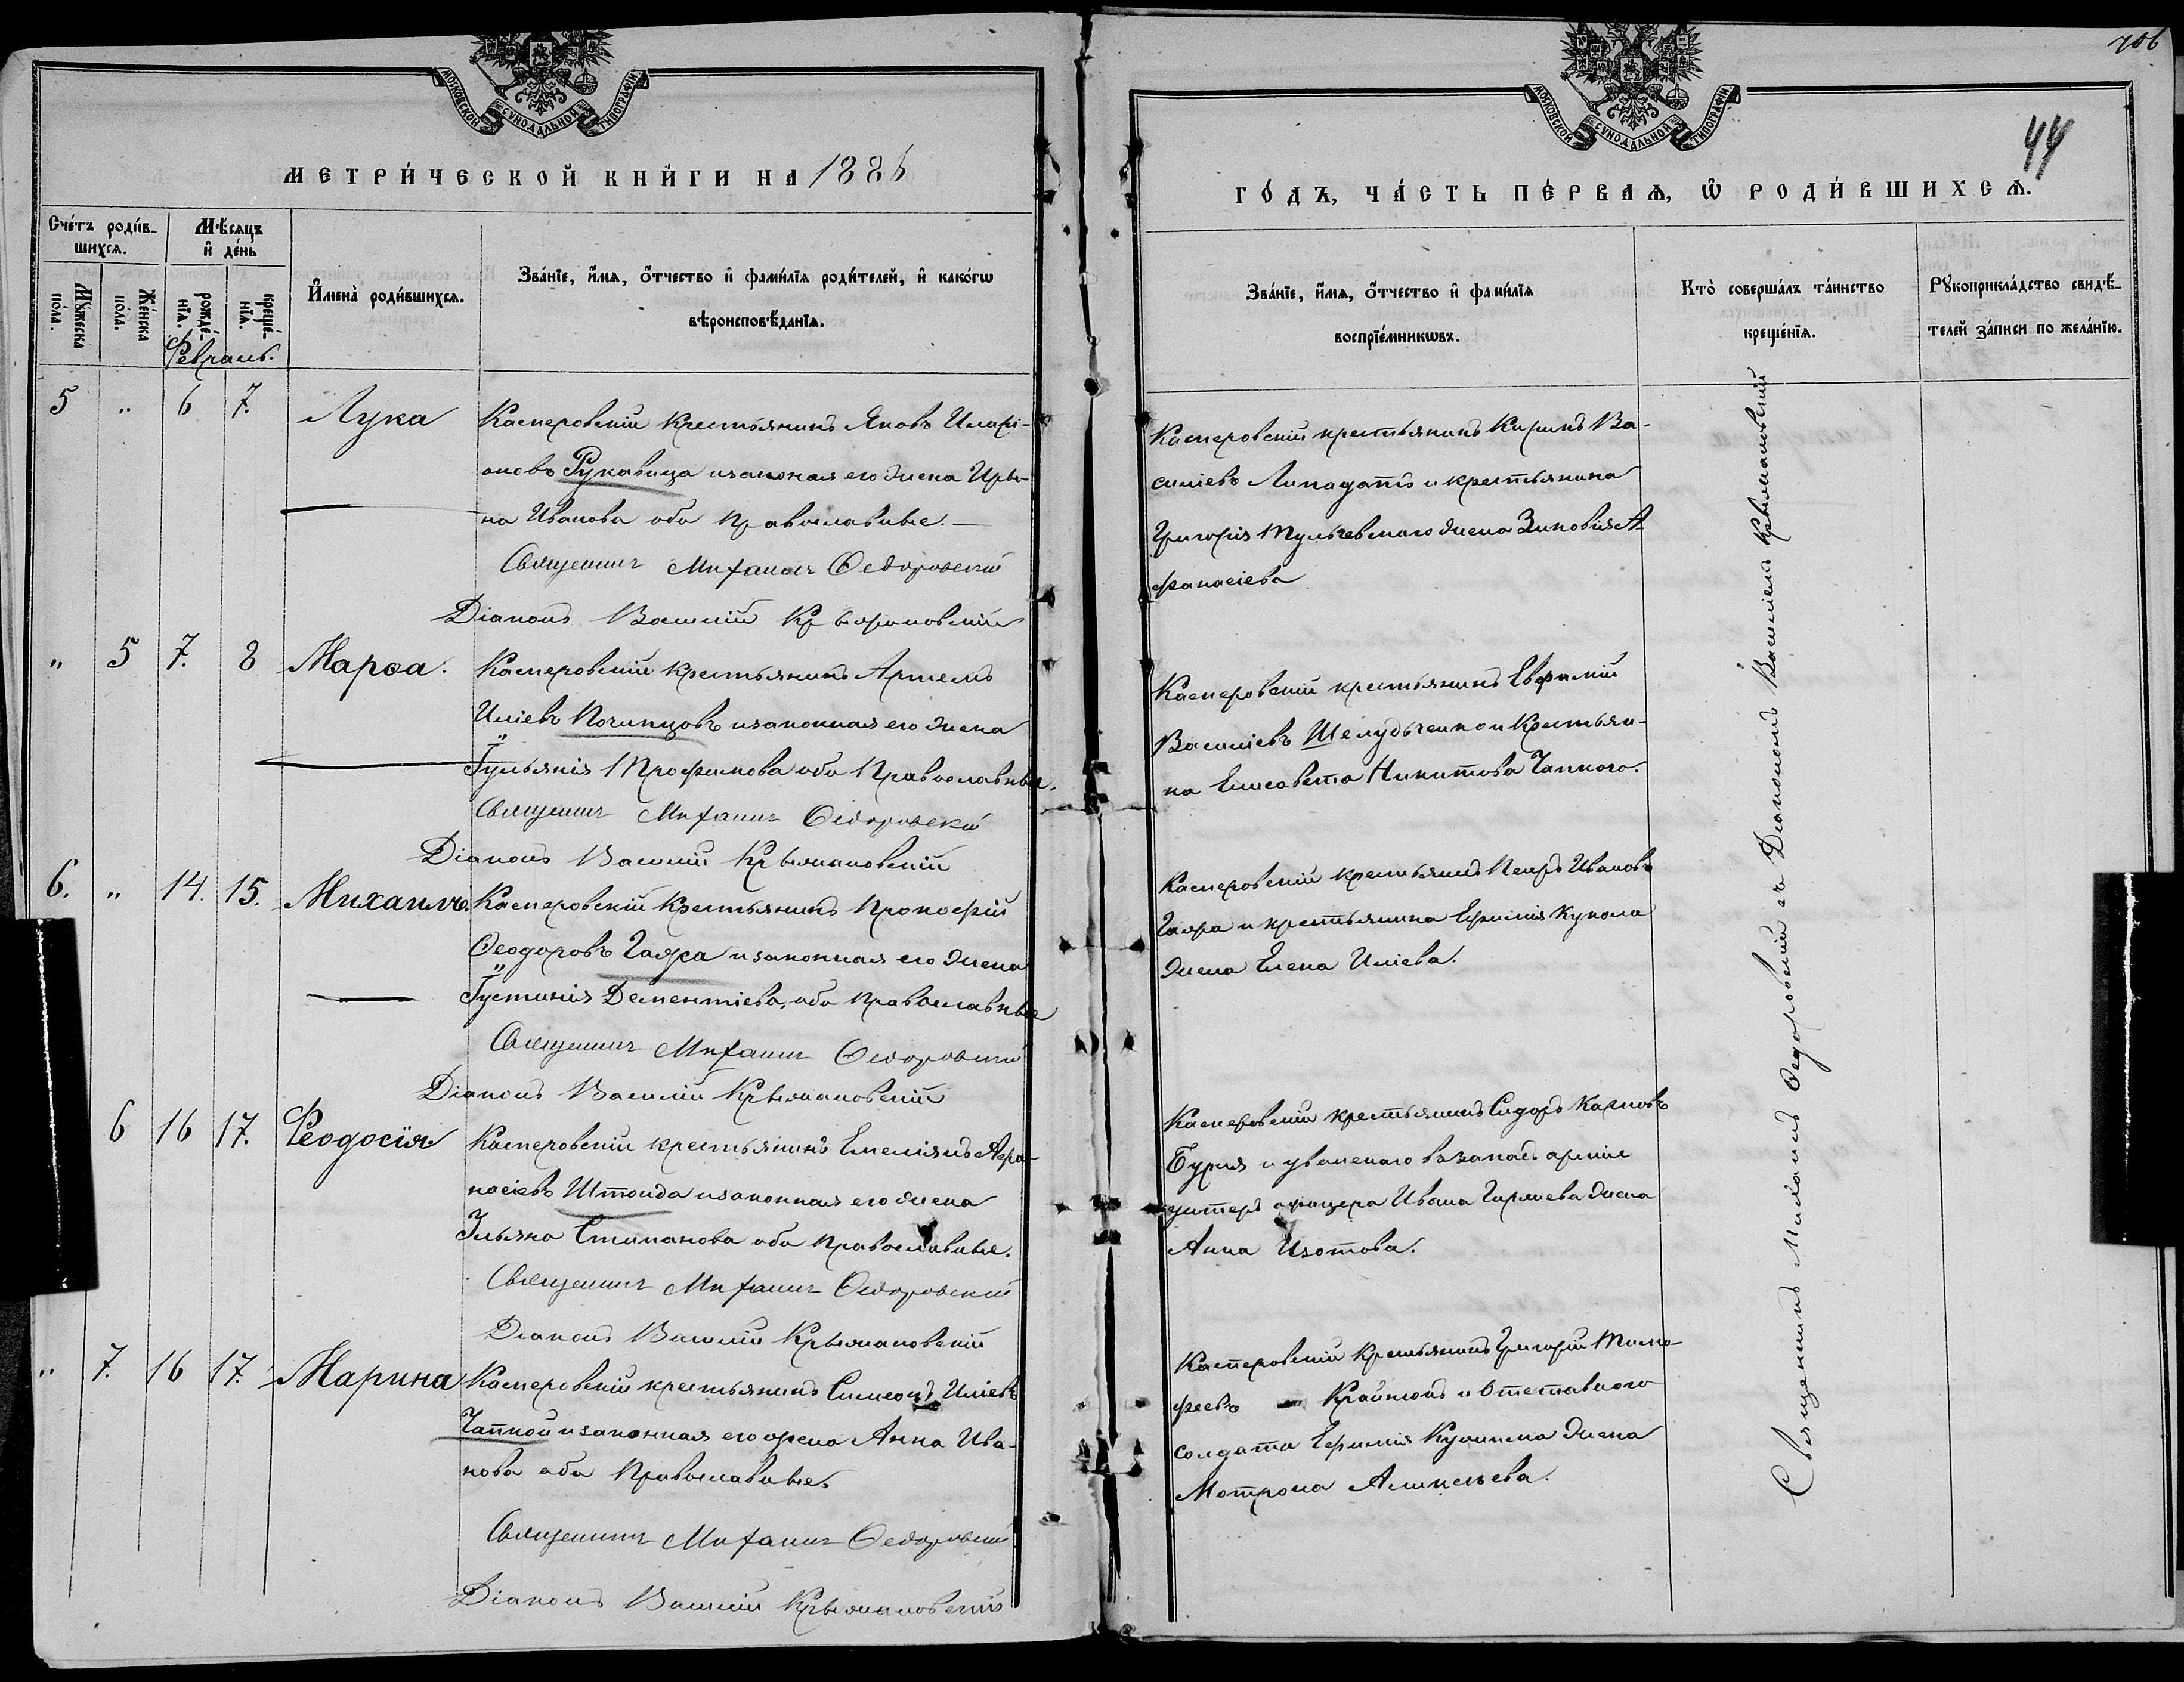 МОСКОВСКОЙ СѴНОДАЛЬНОЙ ТИПОГРАФІИ
МЕТРИ́ЧЕСКОЙ КНИ́ГИ НА 1886
Сче́тъ роди́в-
шихсѧ.
Мѣ́сѧцъ
и҆ де́нь
Мꙋ́жеска
по́ла.
Же́нска
по́ла.
рожде́-
нїѧ.
креще́-
нїѧ.
И҆мена̀ роди́вшихсѧ.
Зва́нїе, и҆́мѧ, ѻ҆́тчество и҆ фами́лїѧ роди́телей, и҆ како́гѡ
вѣроисповѣ́данїѧ.
Февраль.
5 " 6 7. Лука Касперовскій крестьянинъ Яковъ Иларі-
оновъ Рукавица и законная его жена Ири-
на Иванова оба православные.
Священникъ Михаилъ Ѳедоровскій
Діаконъ Василій Крыжановскій
" 5 7. 8 Марѳа. Касперовскій крестьянинъ Артемъ
Иліевъ Починцовъ и законная его жена
Іульянія Трофимова оба Православные.
Священникъ Михаилъ Ѳедоровскій
Діаконъ Василій Крыжановскій
6. " 14. 15. Михаилъ. Касперовскій крестьянинъ Прокофій
Ѳеодоровъ Гаяра и законная его жена
Іустинія Дементіева, оба православные
Священникъ Михаилъ Ѳедоровскій
Діаконъ Василій Крыжановскій
6 16 17. Феодосія Касперовскій крестьянинъ Емеліянъ Афа-
насіевъ Штонда и законная его жена
Ульяна Стипанова оба православные.
Священникъ Михаилъ Ѳедоровскій
Діаконъ Василій Крыжановскій
" 7. 16 17. Марина Касперовскій крестьянинъ Симеонъ Иліевъ
Чапкой и законная его жена Анна Ива-
нова оба Православные.
Священникъ Михаилъ Ѳедоровскій
Діаконъ Василій Крыжановскій
706
44
МОСКОВСКОЙ СѴНОДАЛЬНОЙ ТИПОГРАФІИ
ГО́ДЪ, ЧА́СТЬ ПЕ́РВАѦ, Ѡ҆ РОДИ́ВШИХСѦ.
Зва́нїе, и҆́мѧ, ѻ҆́тчество и҆ фами́лїѧ
воспрїе́мникѡвъ.
Кто̀ соверша́лъ та́инство
креще́нїѧ.
Рꙋкоприкла́дство свидѣ́-
телей за́писи по жела́нїю.
Касперовскій крестьянинъ Ва-
силіевъ и крестьянина
Григорія Тульчевскаго жена Зиновія А-
фанасіева
Касперовскій крестьянинъ Евфимій
Василіевъ Шелудченко и крестьян-
ка Елисавета Никитова Чапкого.
Касперовскій крестьянинъ Петръ Ивановъ
Гаяра и крестьянина Ефимія Кукола
жена Елена Иліева.
Касперовскій крестьянинъ Сидоръ Карповъ
Бурля и уволенаго въ запасъ арміи
унтеръ офицера Ивана жена
Анна Изотова.
Касперовскій крестьянинъ Григорій Тимо-
феевъ и отставного
солдата Ефимія жена
Мотрона
Священникъ Михаилъ Ѳедоровскій съ Діакономъ Василіемъ Крыжановскій